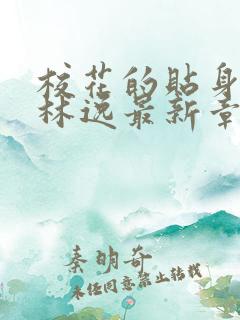 校花的贴身
林逸最新章
秦明奇
未经同意禁止转载